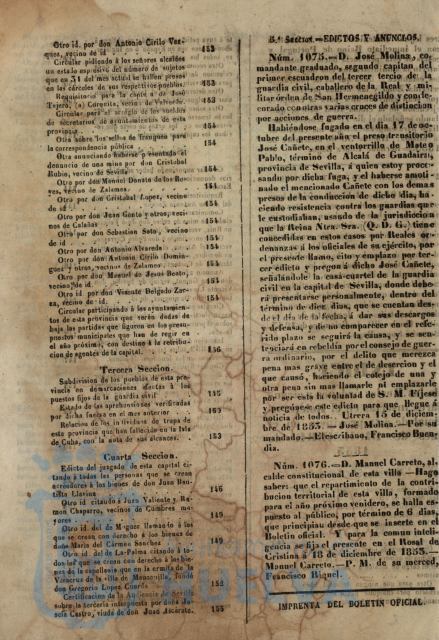 Otro id. por don Antonio Cirilo Vaz-
quez, vecino de id. 153
Circular pidiendo á los señores alcaldes
un estado espresivo del número de sujetos
que en 31 del mes actual se hallen presos
en las cárceles de sus respectivos pueblos.
Requisitorio para la captura de José
Tejero, (a) Corquita, vecino de Valverde. 153
Circular para el arreglo de los sueldos
de secretarios de ayuntamientos de esta
provincia. 154
Otra sobre los sellos de franqueo para
la correspondencia pública 154
Otra anunciando haberse presentado el
denuncio de una mina por don Cristobal
Rubio, vecino de Sevilla 154
Otro por don Manuel Donato de los Re-
yes, vecino de Zalamea. 154
Otro por don Cristobal Lopez, vecino
de id. 154
Otro por don Juan Gento y otros, veci-
nos de Calañas 154
Otro por don Sebastian Soto, vecino
de id. 154
Otro por don Antonio Alvarado 154
Otro por don Antonio Cirilo Domin-
guez y otros, vecinos de Zalamea. 154
Otro por don Manuel de Jesus Beato,
vecino de id. 154
Otro id. por don Vicente Delgado Zar-
za, vecino de id. 154
Circular participando á los ayuntamien-
tos de esta provincia que serán dadas de
baja las partidas que figuren en los presu-
puestos municipales que han de regir en
el año próximo, con destino á la retribu-
cion de agentes de la capital. 156
Tercera Seccion.
Subdivision de los pueblos de esta pro-
vincia en demarcaciones afectas á los
puestos fijos de la guardia civil. 155
Estado de las aprehensiones verificadas
por dicha fuerza en el mes anterior 155
Relacion de los individuos de tropa de
esta provincia que han fallecido en la Isla
de Cuba, con la nota de sus alcances. 153
Cuarta Seccion.
Edicto del juzgado de esta capital ci-
tando á todas las personas que se crean
acreedoras á los bienes de don Juan Bau-
tista Elavina 146
Otro id. citando á Juan Valiente y Ra-
mon Chaparro, vecinos de Cumbres ma-
yores 149
Otro id. del de Moguer llamando á los
que se crean con derecho á los bienes de
doña Maria del Cármen Sanchez 149
Otro id. del de La-Palma citando á to-
dos los que se crean con derecho á los bie-
nes de la capellanía que en la ermita de la
Veracruz de la villa de Manzanilla, fundó
don Gregorio Lopez Cuervo 152
Certificacion de la Audiencia de Sevilla
sobre la tercería interpuesta por doña Jo-
sefa Castro, viuda de don Juan Azcárate. 155
5.ª Seccion.—EDICTOS Y ANUNCIOS.
Núm. 1075.—D. José Molina, co-
mandante graduado, segundo capitan del
primer escuadron del tercer tercio de la
guardia civil, caballero de la Real y mi-
litar órden de San Hermenegildo y conde-
corado con otras varias cruces de distincion
por acciones de guerra.
Habiéndose fugado en el dia 17 de oc-
tubre del presente año el preso transitorio
José Cañete, en el ventorrillo de Mateo
Pablo, término de Alcalá de Guadaira,
provincia de Sevilla, á quien estoy proce-
sando por dicha fuga, y el haberse amoti-
nado el mencionado Cañete con los demas
presos de la conduccion de dicho dia, ha-
ciendo resistencia contra los guardias que
le custodiaban, usando de la jurisdiccion
que la Reina Ntra. Sra. (Q. D. G.) tiene
concedidas en estos casos por Reales or-
denanzas á los oficiales de su ejército, por
el presente llamo, cito y emplazo por ter-
cer edicto y pregon á dicho José Cañete,
señalándole la casa-cuartel de la guardia
civil en la capital de Sevilla, donde debe-
rá presentarse personalmente, dentro del
término de diez dias, que se cuentan des-
de el dia de la fecha, á dar sus descargos
y defensa, y de no comparecer en el refe-
rido plazo se seguirá la causa, y se sen-
tenciará en rebeldía por el consejo de guer-
ra ordinario, por el delito que merezca
pena mas grave entre el de desercion y el
que causó, haciendo el cotejo de una y
otra pena sin mas llamarle ni emplazarle
por ser esta la voluntad de S. M. Fíjese
y pregónese este edicto para que llegue á
noticia de todos. Utrera 15 de diciem-
bre de 1855.—José Molina.—Por su
mandado.—El escribano, Francisco Buen-
dia.
Núm. 1076.—D. Manuel Carreto, al-
calde constitucional de esta villa—Hago
saber: que el repartimiento de la contri-
bucion territorial de esta villa, formado
para el año próximo venidero, se halla es-
puesto al público, por término de 6 dias,
que principian desde que se inserte en el
Boletin oficial. Y para la comun inteli-
gencia se fija el presente en el Rosal de
Cristina á 18 de diciembre de 1855.—
Manuel Carreto.—P. M. de su merced,
Francisco Biquel.
IMPRENTA DEL BOLETIN OFICIAL